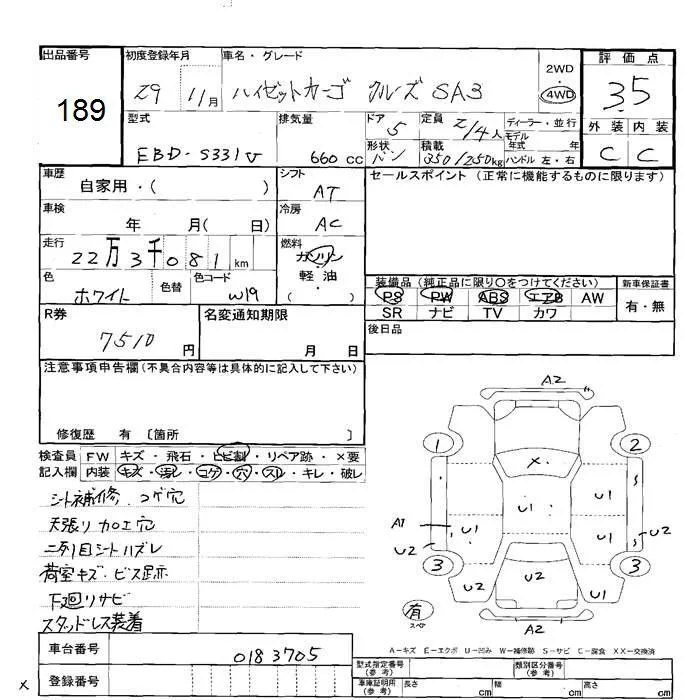 出品番号
189
初度登録年月
29 11月
車名・グレード
ハイゼットカーゴ クルーズ SA3
2WD
・
4WD
評価点
3.5
外装 内装
C C
型式
EBD-S331V
排気量
660 cc
ドア
5
形状
バン
定員
2/4人
積載
350/250kg
ディーラー・並行
モデル
年式 年
ハンドル 左・右
車歴
自家用・( )
シフト
AT
車検
年 月( 日)
冷房
AC
走行
22万3千081km
燃料
ガソリン
軽・油
( ・ )
色
ホワイト
色替
色コード
W19
R券
7510円
名変通知期限
月 日
セールスポイント(正常に機能するものに限ります)
装備品(純正品に限り○をつけてください)
PS PW ABS エアB AW
SR ナビ TV カワ
新車保証書
有・無
後日品
注意事項申告欄(不具合内容等は具体的に記入して下さい)
修復歴 有〔箇所 〕
検査員記入欄
FW キズ・飛石・ヒビ割・リペア跡・×要
内装 キズ・汚レ・コゲ・穴・スレ・キレ・破レ
シート補修、コゲ穴
天張リ加工穴
二列目シートハズレ
荷室キズ・ビス跡
下廻リサビ
スタッドレス装着
A2
1
2
X
U1
U1
A1
U1
U1
U2
U2
3
3
U2
U2
U2
有
スペア
A2
A-キズ E-エクボ U-凹み W-補修跡 S-サビ C-腐食 XX-交換済
車台番号
0183705
登録番号
x
型式指定番号
(参考)
類別区分番号
(参考)
車庫証明用
(参考)
長さ cm
幅 cm
高さ cm